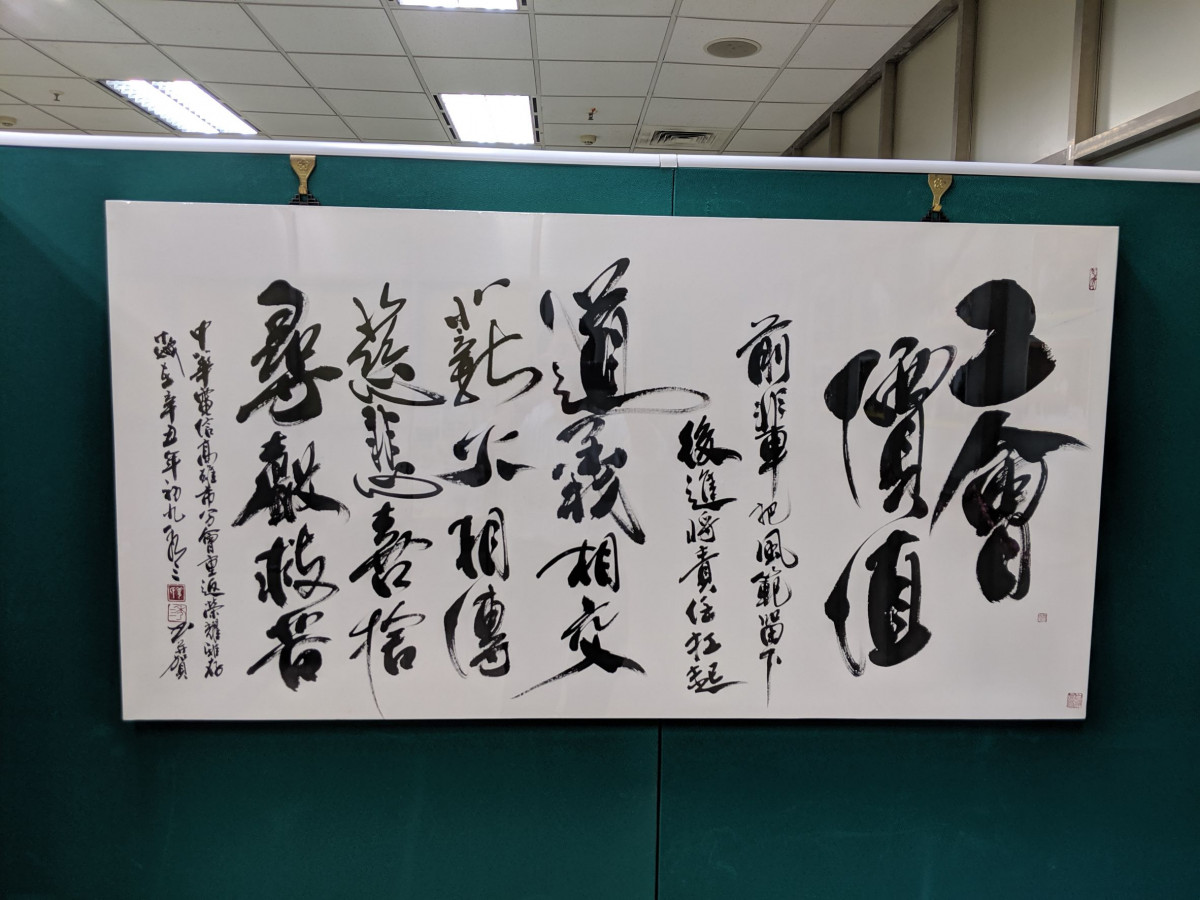 工會
價值
前輩把風範留下
後進將責任扛起
道義相交
薪火相傳
慈悲喜捨
尋聲救苦
中華電信高雄市分會重返榮耀誌慶
辛丑年初九